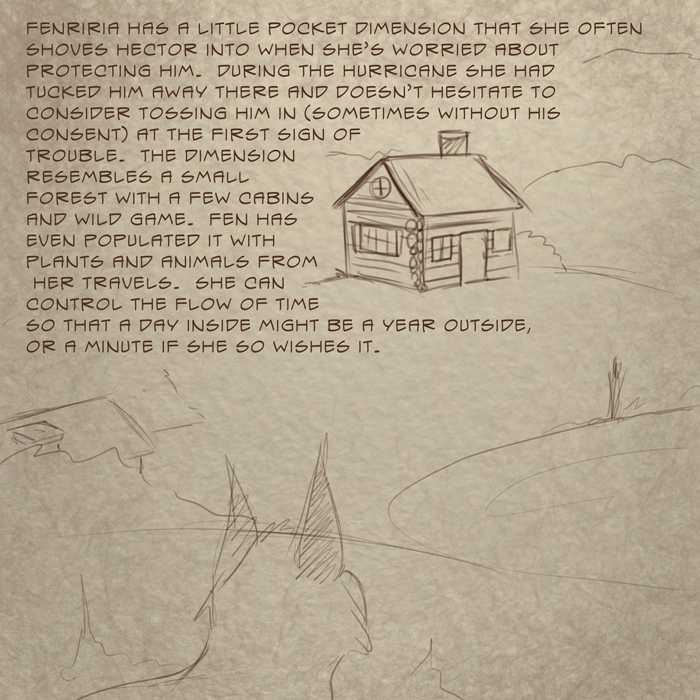 FENRIRIA HAS A LITTLE POCKET DIMENSION THAT SHE OFTEN
SHOVES HECTOR INTO WHEN SHE'S WORRIED ABOUT
PROTECTING HIM. DURING THE HURRICANE SHE HAD
TUCKED HIM AWAY THERE AND DOESN'T HESITATE TO
CONSIDER TOSSING HIM IN (SOMETIMES WITHOUT HIS
CONSENT) AT THE FIRST SIGN OF
TROUBLE. THE DIMENSION
RESEMBLES A SMALL
FOREST WITH A FEW CABINS
AND WILD GAME. FEN HAS
EVEN POPULATED IT WITH
PLANTS AND ANIMALS FROM
HER TRAVELS. SHE CAN
CONTROL THE FLOW OF TIME
SO THAT A DAY INSIDE MIGHT BE A YEAR OUTSIDE,
OR A MINUTE IF SHE SO WISHES IT.